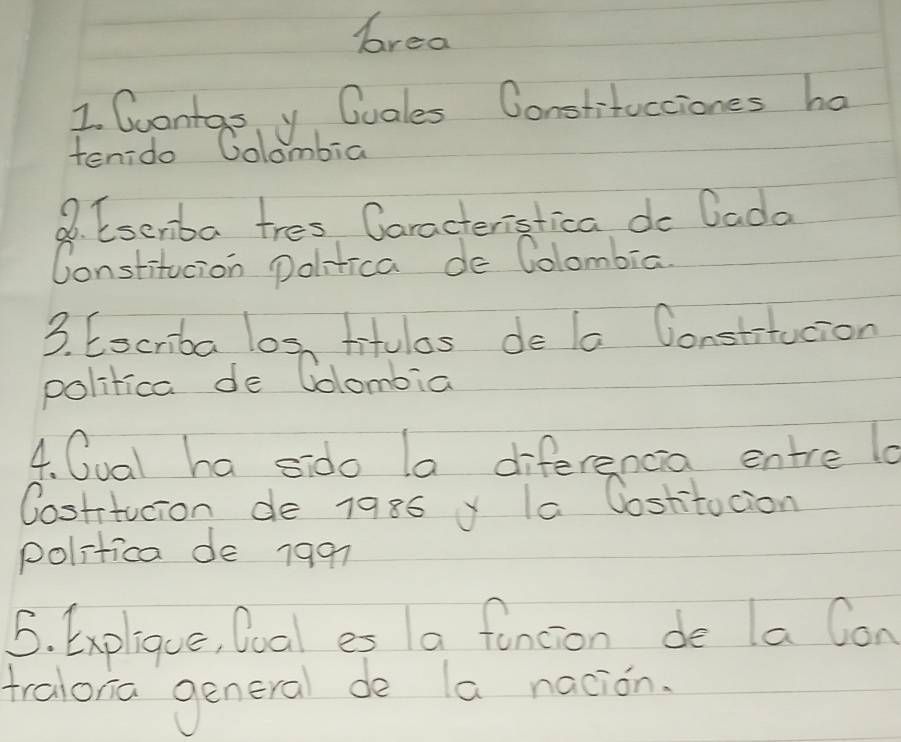 Tarea
1. Cuantas y Cuales Constitucciones ha
tenido Colombia
2. Escriba tres Caracteristica de Cada
Constitución Politica de Colombia.
3. Escriba los titulos de la Constitucion
politica de Colombia
4. Cual ha sido la diferencia entre la
Costitucion de 1986 y la Costitucion
politica de 1991
5. Explique, Cual es la funcion de la Con
traloria general de la nación.